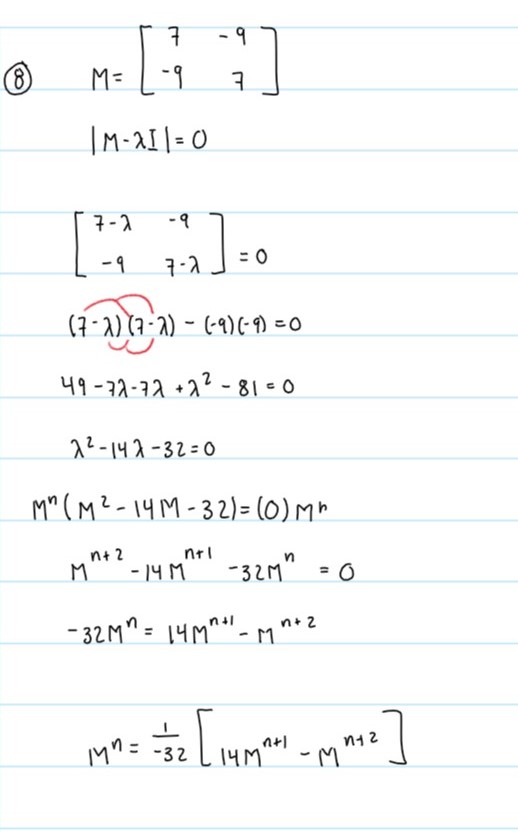 ⑧ M = [ 7 -9
-9 7 ]
|M-λI| = 0
[ 7-λ -9
-9 7-λ ] = 0
(7-λ)(7-λ) - (-9)(-9) = 0
49 - 7λ - 7λ + λ² - 81 = 0
λ² - 14λ - 32 = 0
Mⁿ(M² - 14M - 32) = (0)Mⁿ
Mⁿ⁺² - 14Mⁿ⁺¹ - 32Mⁿ = 0
-32Mⁿ = 14Mⁿ⁺¹ - Mⁿ⁺²
Mⁿ = 1/-32 [14Mⁿ⁺¹ - Mⁿ⁺²]